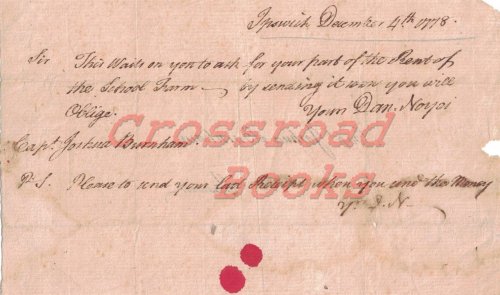 Ipswich December 4th 1778.
Sir This Waits on you to ask for your part of the Rent of
the School Farm — by sending it you will
Oblige. Yours Dan. Noyes
Capt. Joshua Burnham.
P.S. Please to send your last Receipt when you send the Money
Yrs D. N—
Crossroad
Books